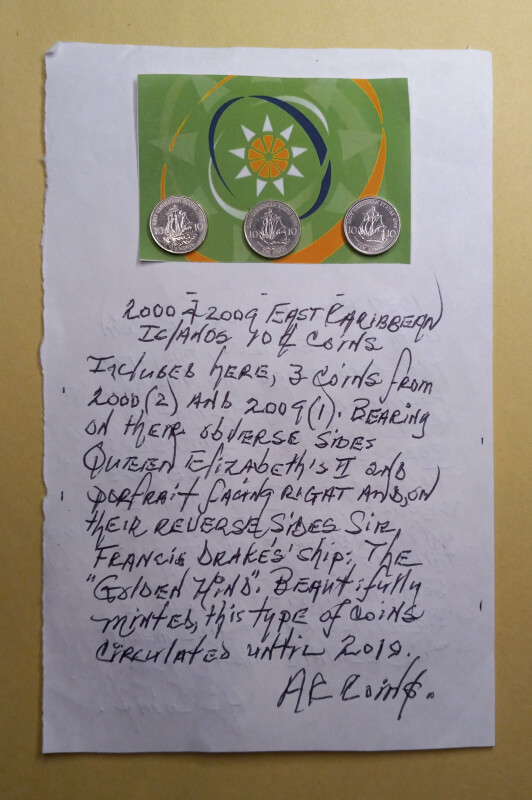 10 10
10 10
10 10
2000 & 2009 EAST CARIBBEAN
ISLANDS 10¢ COINS
INCLUDED HERE, 3 COINS FROM
2000(2) AND 2009(1). BEARING
ON THEIR OBVERSE SIDES
QUEEN ELIZABETH'S II AND
PORTRAIT FACING RIGHT AND, ON
THEIR REVERSE SIDES SIR
FRANCIS DRAKES' SHIP: THE
"GOLDEN HIND". BEAUTIFULLY
MINTED, THIS TYPE OF COINS
CIRCULATED UNTIL 2019.
AR COINS.